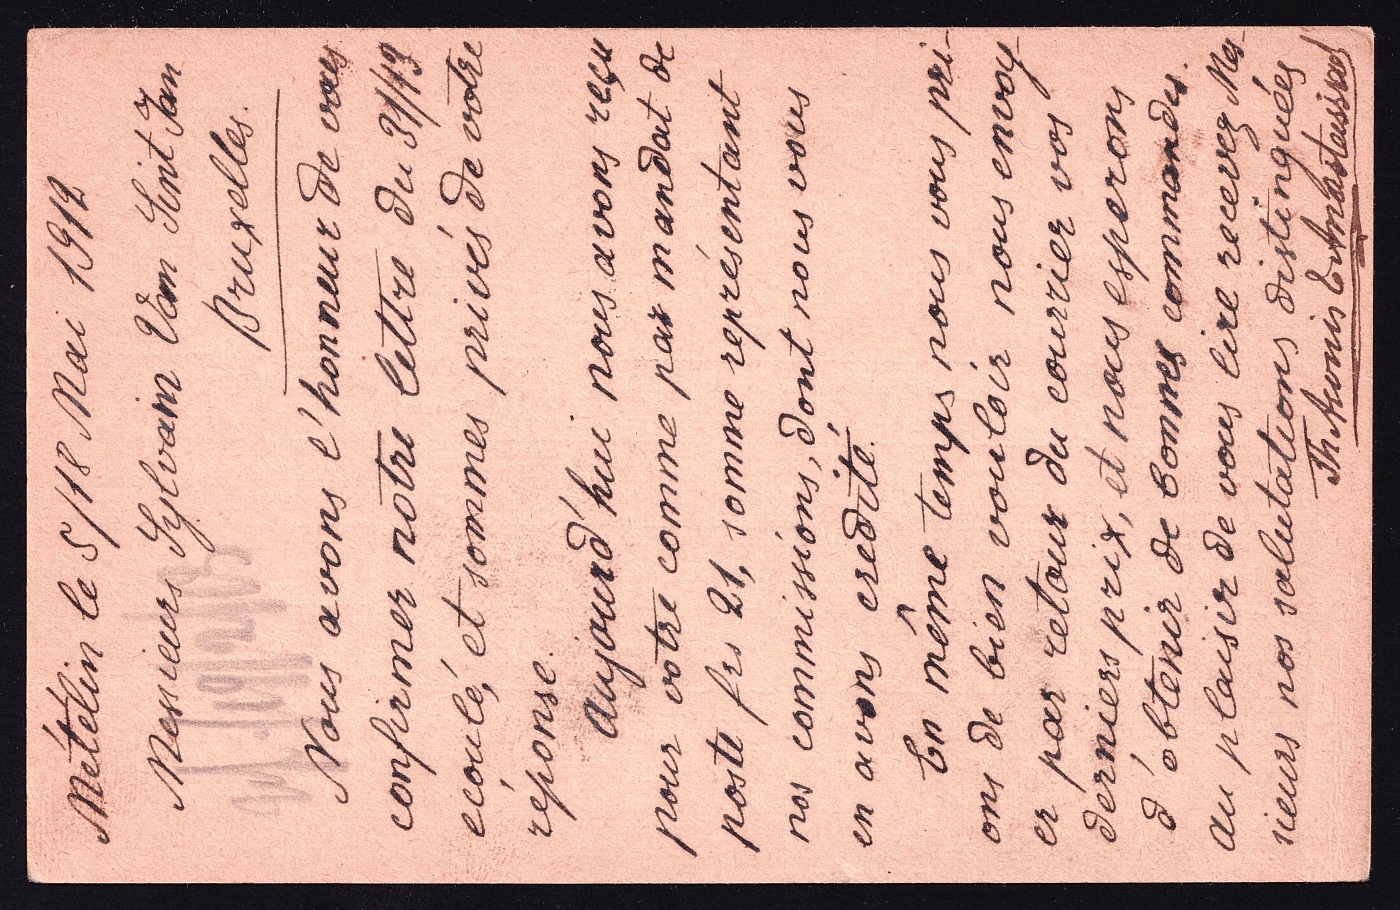 Métélin le 5/18 Mai 1912
Messieurs Sylvain Van Sint Jan
Bruxelles.
Nous avons l'honneur de vous
confirmer notre lettre du 31/13
ecoulé, et sommes privés de votre
reponse.
Aujourd'hui nous avons reçu
pour votre comme par mandat de
poste frs 21, somme représentant
nos commissions, dont nous vous
en avons credité.
En même temps nous vous pri-
ons de bien vouloir nous envoy-
er par retour du courrier vos
derniers prix, et nous esperons
d'obtenir de bonnes commandes.
Au plaisir de vous lire recevez Mes-
sieurs nos salutations distinguées